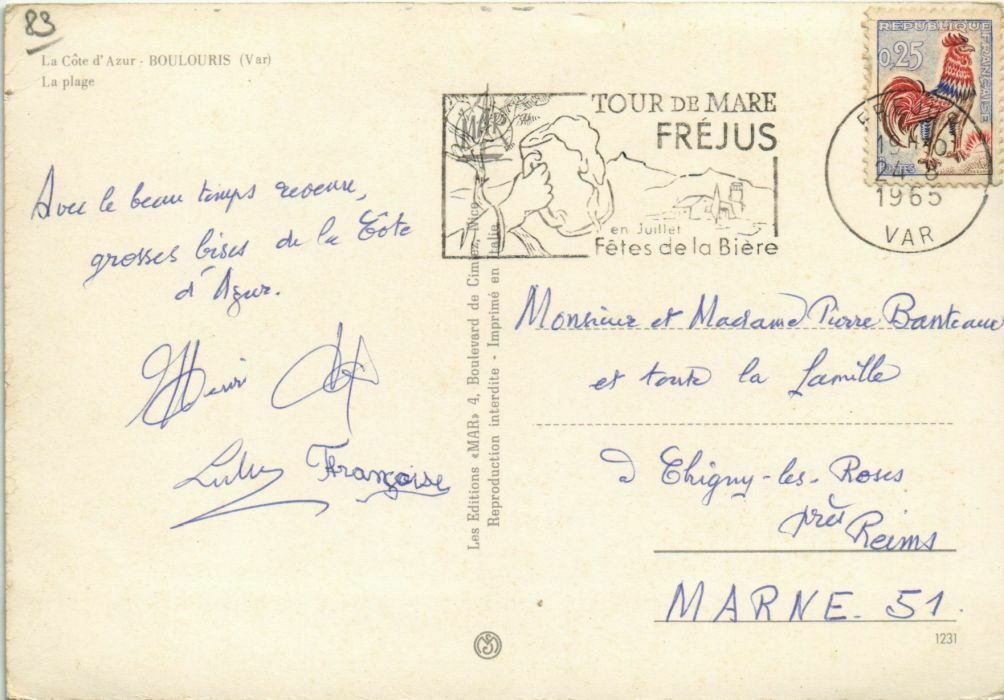 83
La Côte d'Azur - BOULOURIS (Var)
La plage
RÉPUBLIQUE FRANÇAISE
0,25
POSTES
MAR
TOUR DE MARE
FRÉJUS
en Juillet
Fêtes de la Bière
19H
24-8
1965
VAR
Avec le beau temps revenu,
grosses bises de la Côte
d'Azur.
Henri
Françoise
Les Editions «MAR» 4, Boulevard de Cimiez, Nice
Reproduction interdite - Imprimé en Italie
Monsieur et Madame Pierre Banteaux
et toute la famille
à Chigny-les-Roses
près
Reims
MARNE. 51.
1231